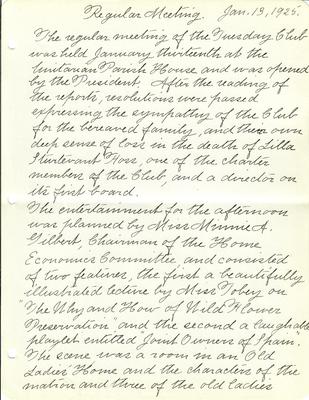 Regular Meeting. Jan. 13, 1925.
The regular meeting of the Tuesday Club
was held January thirteenth at the
Unitarian Parish House and was opened
by the President. After the reading of
the reports, resolutions were passed
expressing the sympathy of the Club
for the bereaved family, and their own
deep sense of loss in the death of Lilla
Sturtevant Ross, one of the charter
members of the Club, and a director on
its first board.
The entertainment for the afternoon
was planned by Miss Minnie A.
Gilbert, Chairman of the Home
Economics Committee and consisted
of two features, the first a beautifully
illustrated lecture by Miss Tobey on
"The Why and How of Wild Flower
Preservation" and the second a laughable
playlet entitled "Joint Owners of Spain".
The scene was a room in an Old
Ladies' Home and the characters of the
mation and three of the old ladies